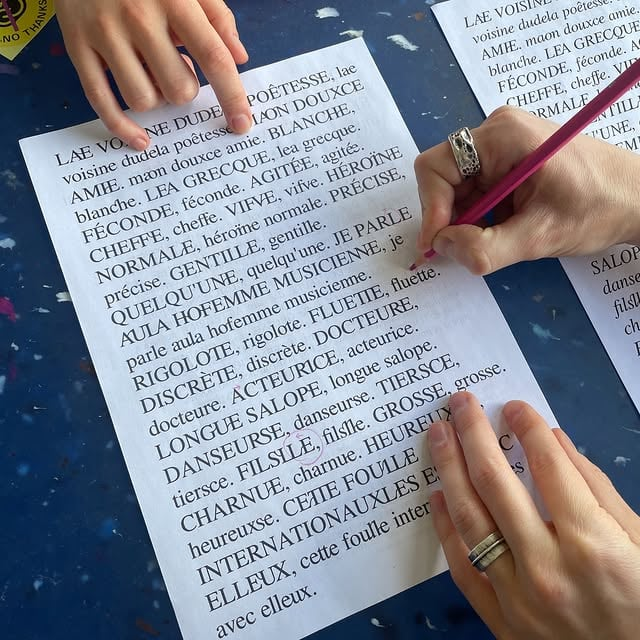 NO THANKS
LAE VOISINE DUDE POÊTESSE, lae
voisine dudela poêtesse MON DOUXCE
AMIE, maon douxce amie. BLANCHE,
blanche. LEA GRECQUE, lea grecque.
FÉCONDE, féconde. AGITÉE, agitée.
CHEFFE, cheffe. VIFVE, vifve. HÉROÏNE
NORMALE, héroïne normale. PRÉCISE,
précise. GENTILLE, gentille.
QUELQU'UNE, quelqu'une. JE PARLE
AULA HOFEMME MUSICIENNE, je
parle aula hofemme musicienne.
RIGOLOTE, rigolote. FLUETIE, fluette.
DISCRÈTE, discrète. DOCTEURE,
docteure. ACTEURICE, acteurice.
LONGUE SALOPE, longue salope.
DANSEURSE, danseurse. TIERSCE,
tiersce. FILSLLE, filslle. GROSSE, grosse.
CHARNUE, charnue. HEUREUX
heureuxse. CETIE FOU1LE
INTERNATIONAUXLES E
ELLEUX, cette foulle inter
avec elleux.
LAE VOISINE
voisine dudela poêtess
AMIE, maon douxce a
blanche. LEA GRECQU
FÉCONDE, féconde. A
CHEFFE, cheffe.
NORMALE
SALOP
danse
filsl
ch